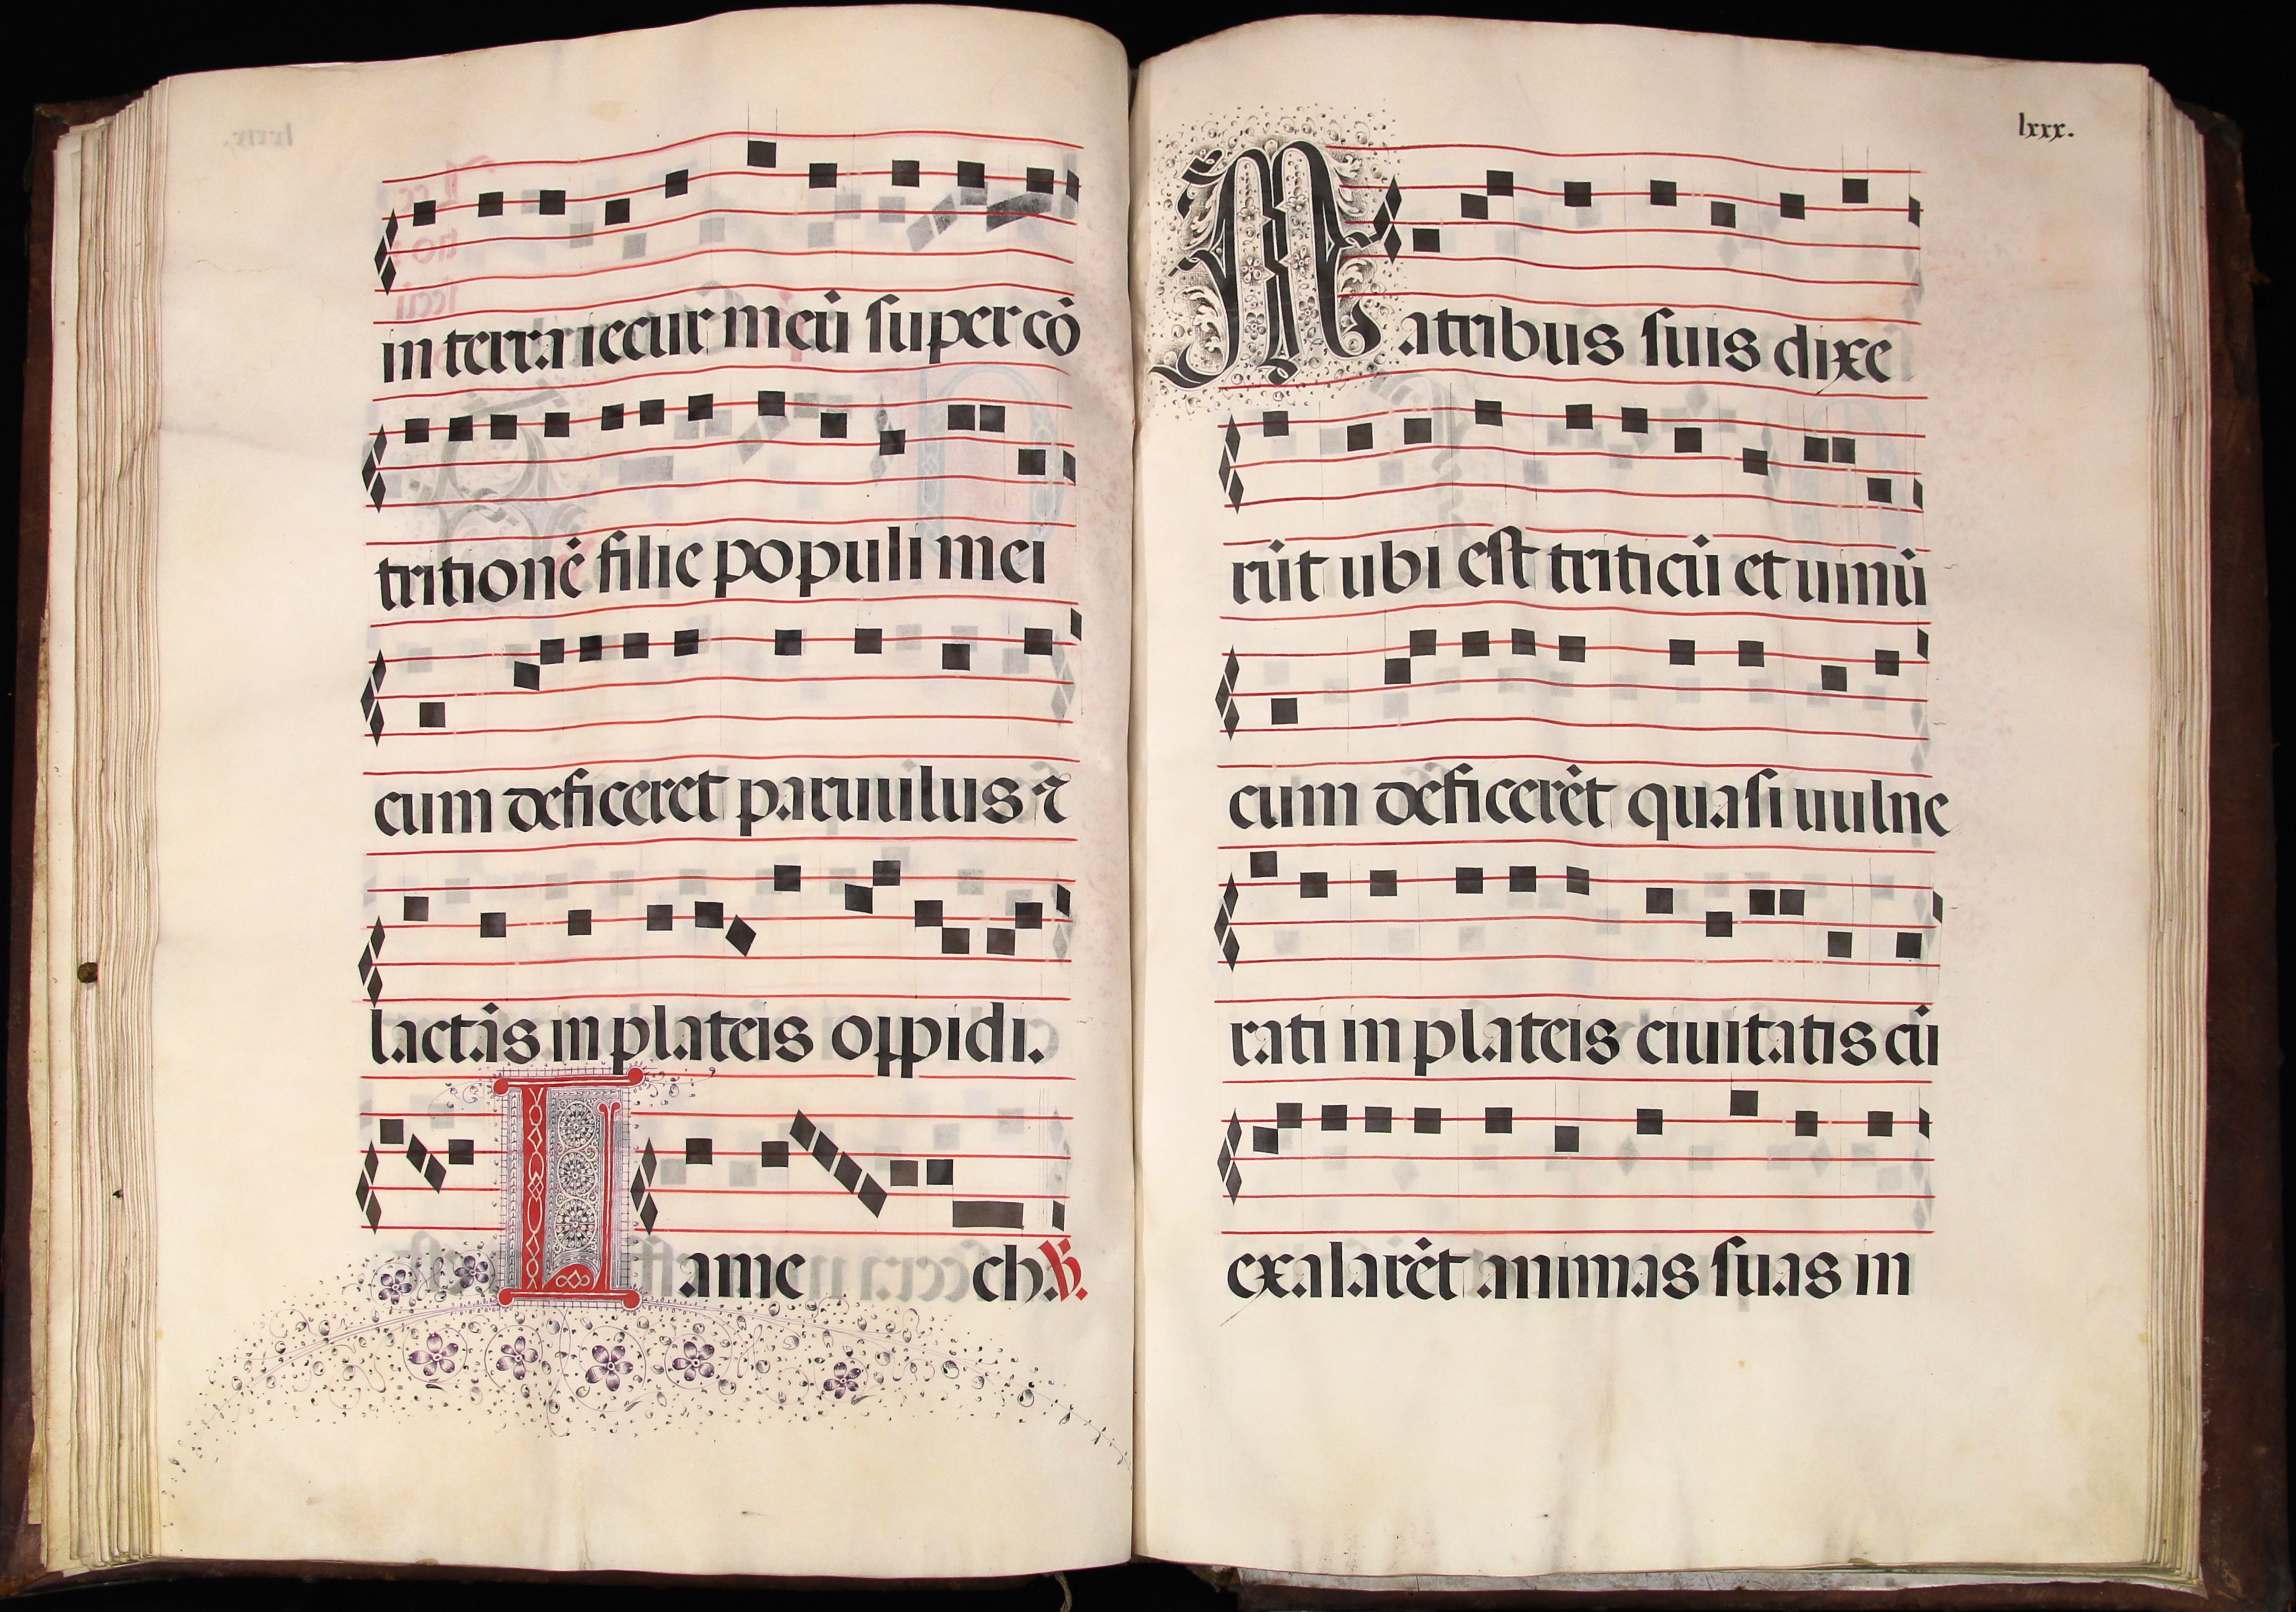 in terra iecur meū super cō
tritionē filie populi mei
cum deficeret paruulus ⁊
lactās in plateis oppidi.
Lamech. ℟.
lxxx.
Matribus suis dixe
rūt ubi est triticū et uinū
cum deficerēt quasi uulne
rati in plateis ciuitatis cū
exalarēt animas suas in